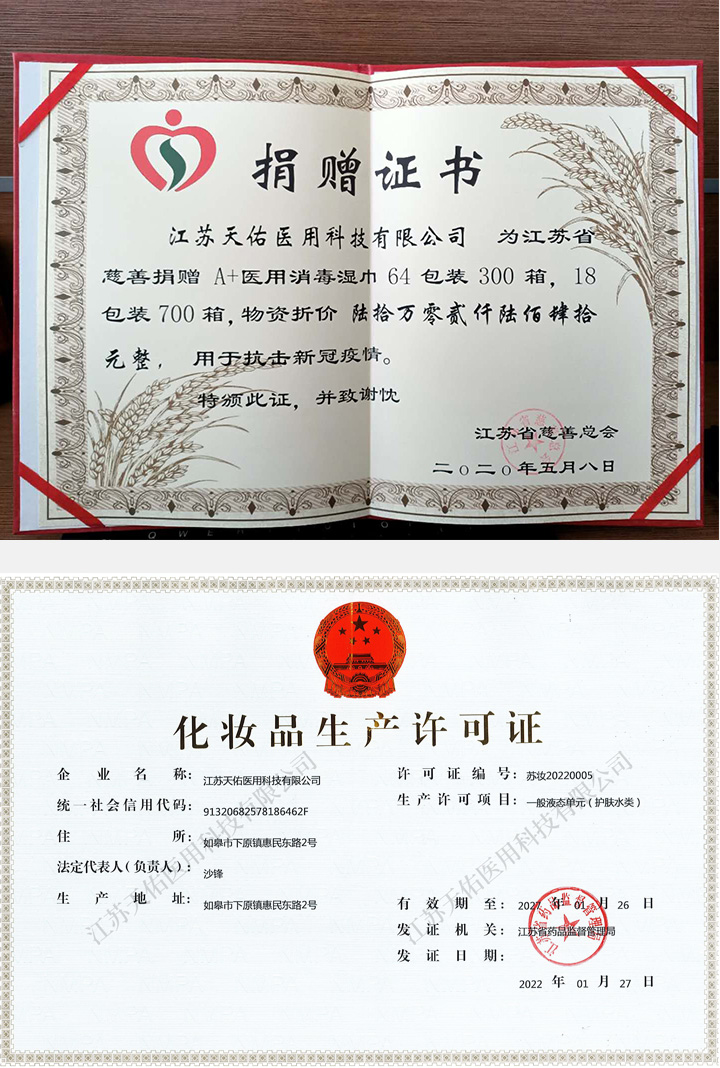 捐赠证书
江苏天佑医用科技有限公司 为江苏省
慈善捐赠 A+医用消毒湿巾 64 包装 300 箱，18
包装 700 箱，物资折价 陆拾万零贰仟陆佰肆拾
元整， 用于抗击新冠疫情。
特颁此证，并致谢忱
江苏省慈善总会
二〇二〇年五月八日
化妆品生产许可证
企业名称：江苏天佑医用科技有限公司
统一社会信用代码：91320682578186462F
住所：如皋市下原镇惠民东路2号
法定代表人（负责人）：沙锋
生产地址：如皋市下原镇惠民东路2号
许可证编号：苏妆20220005
生产许可项目：一般液态单元（护肤水类）
有效期至：2027 年 01 月 26 日
发证机关：江苏省药品监督管理局
发证日期：
2022 年 01 月 27 日
江苏天佑医用科技有限公司
江苏天佑医用科技有限公司
江苏省药品监督管理局